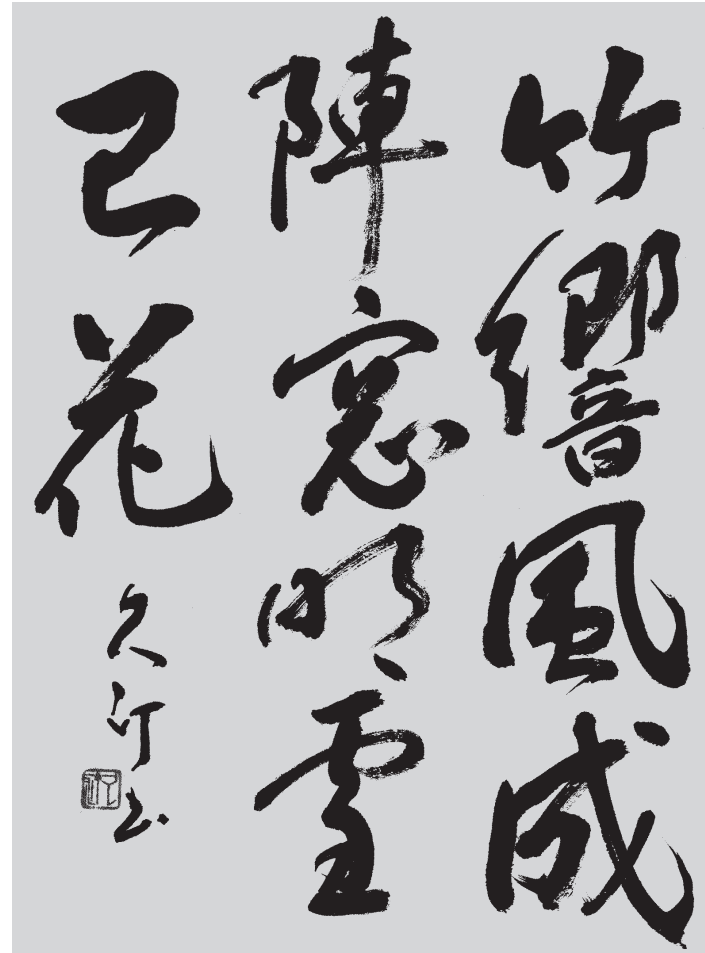 竹響風成
陣窓明雪
已花
久行书